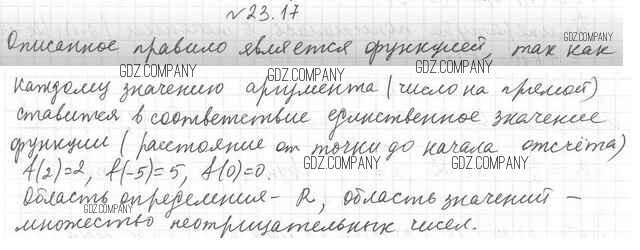 №23.17
Описанное правило является функцией, так как
каждому значению аргумента (число на прямой)
ставится в соответствие единственное значение
функции (расстояние от точки до начала отсчёта)
f(2)=2, f(-5)=5, f(0)=0.
Область определения - R, область значений -
множество неотрицательных чисел.
GDZ.COMPANY
GDZ.COMPANY
GDZ.COMPANY
GDZ.COMPANY
GDZ.COMPANY
GDZ.COMPANY
GDZ.COMPANY
GDZ.COMPANY